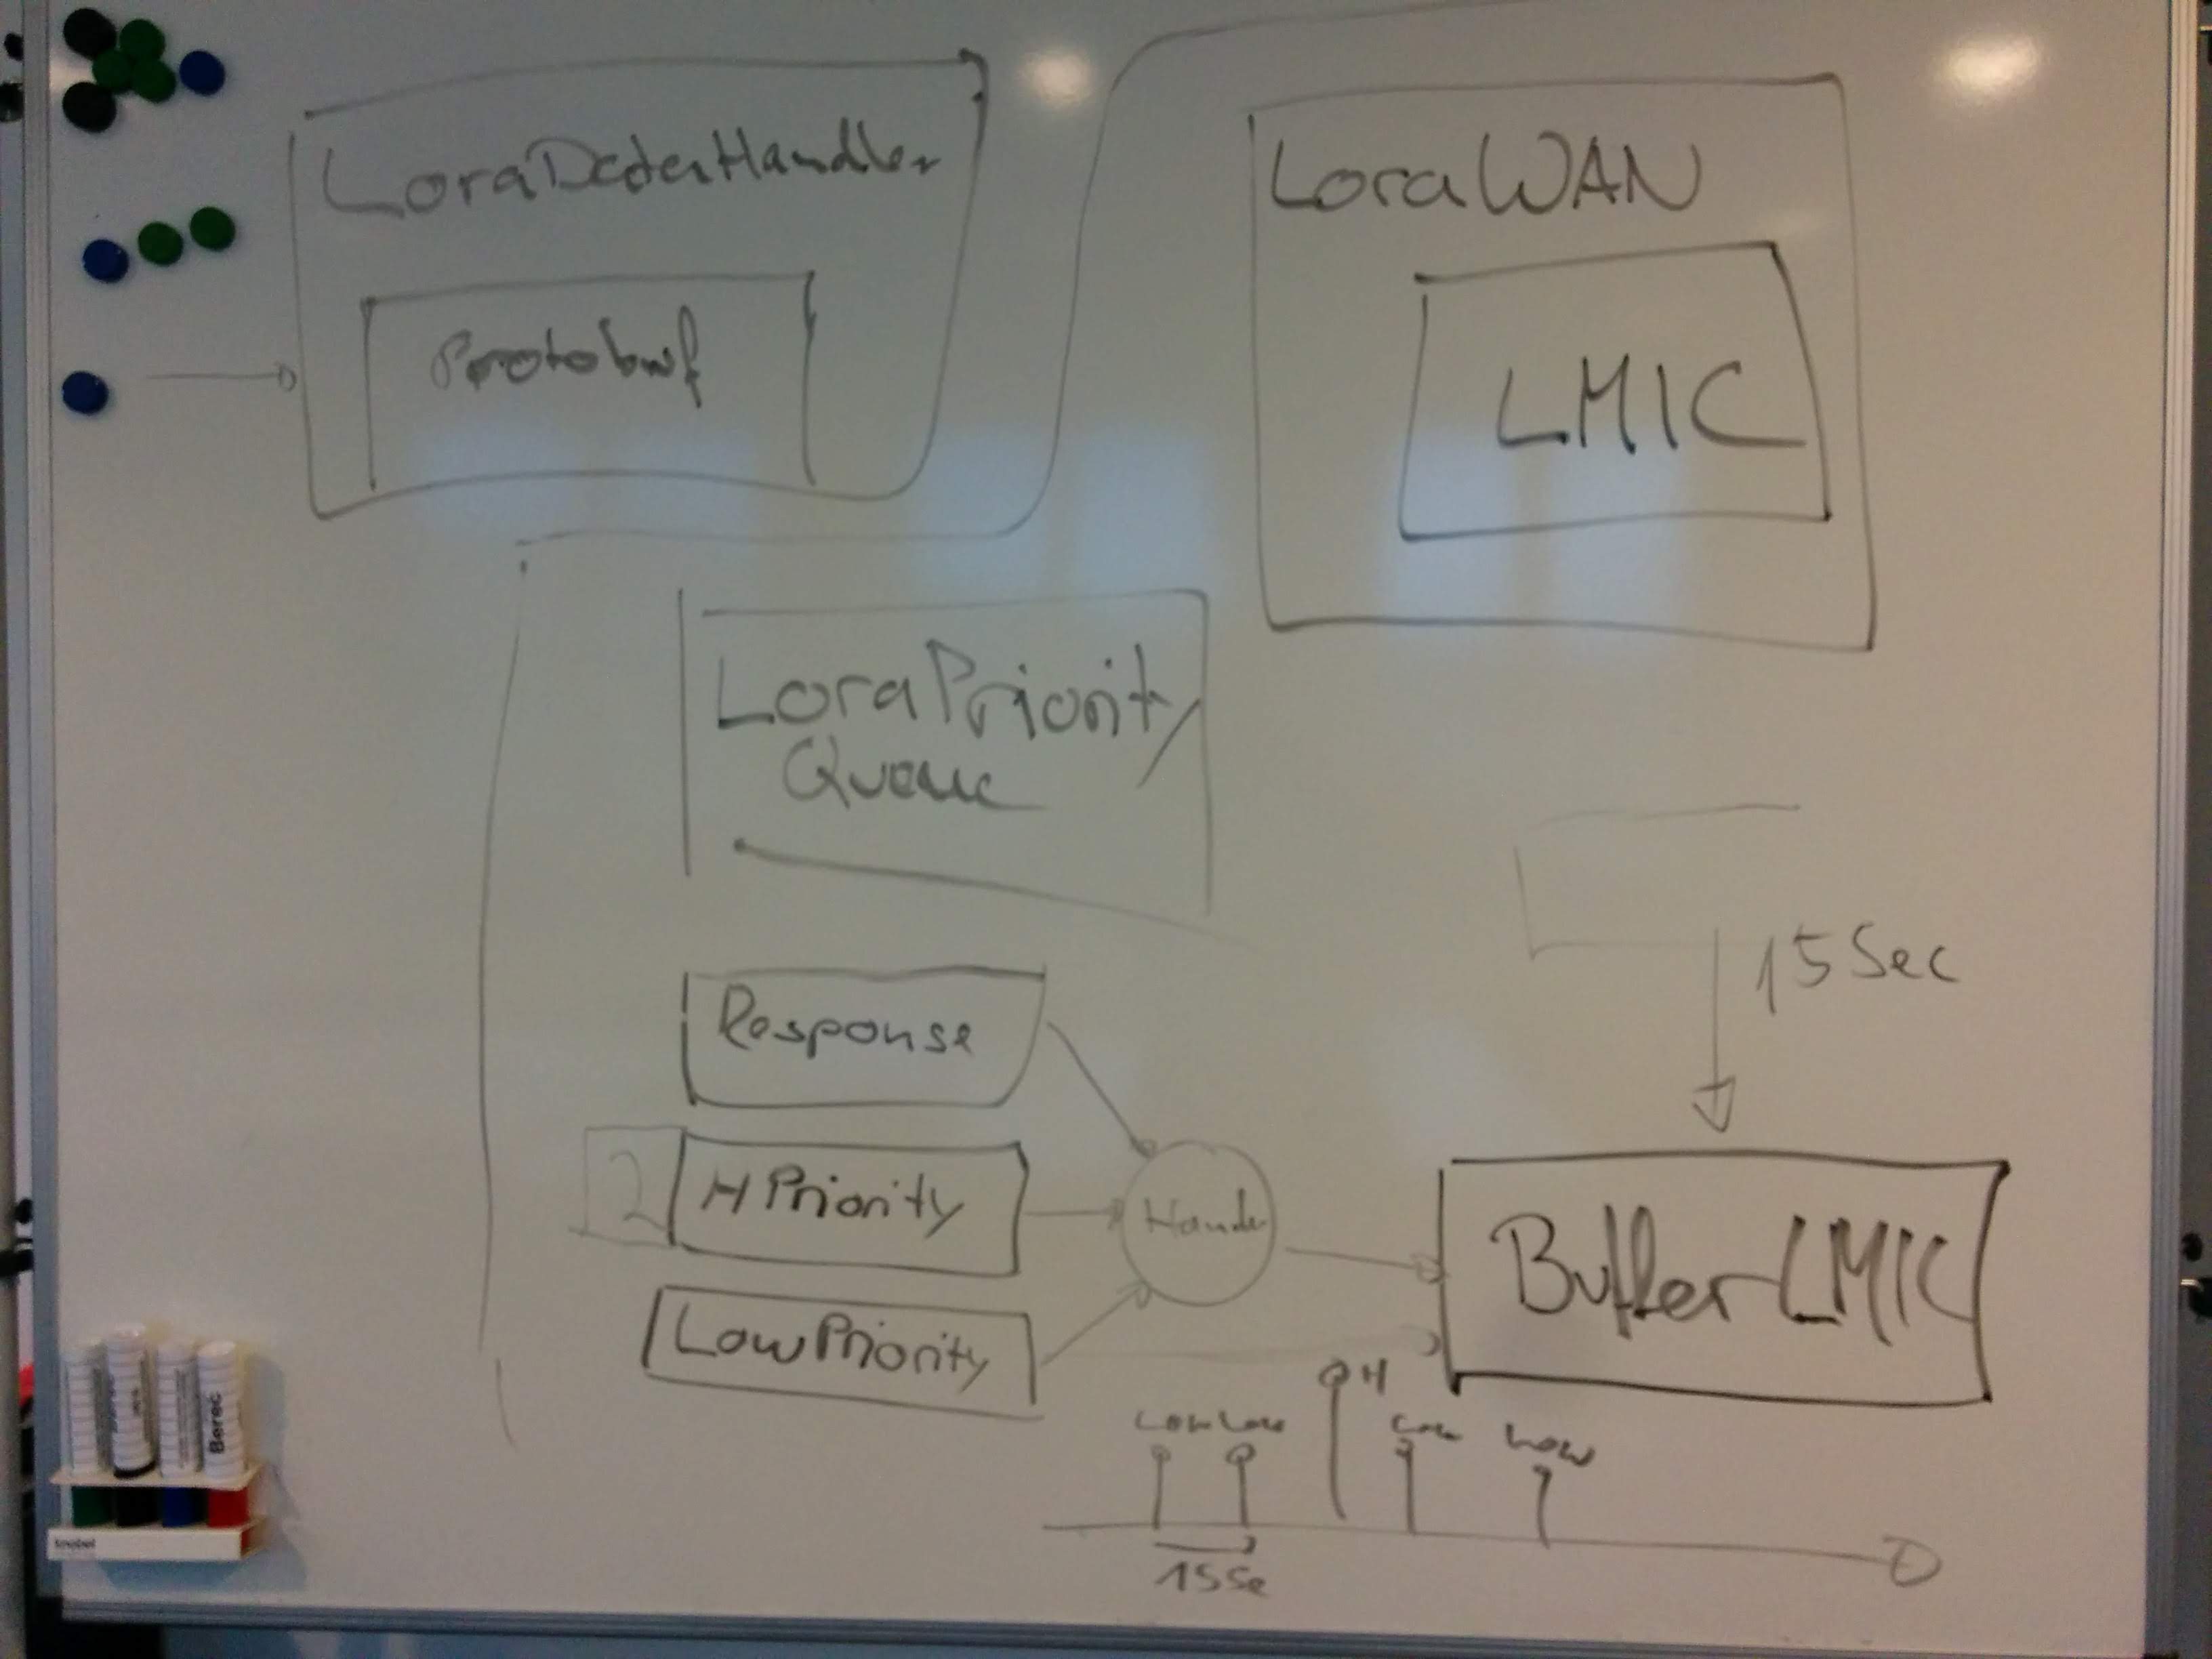 LoraDatenHandler
Protobuf
LoraWAN
LMIC
LoraPriority
Queue
15 Sec
Response
2
H Priority
Low Priority
Handler
Buffer LMIC
H
Low Low
Low
Low
15Se
Berec